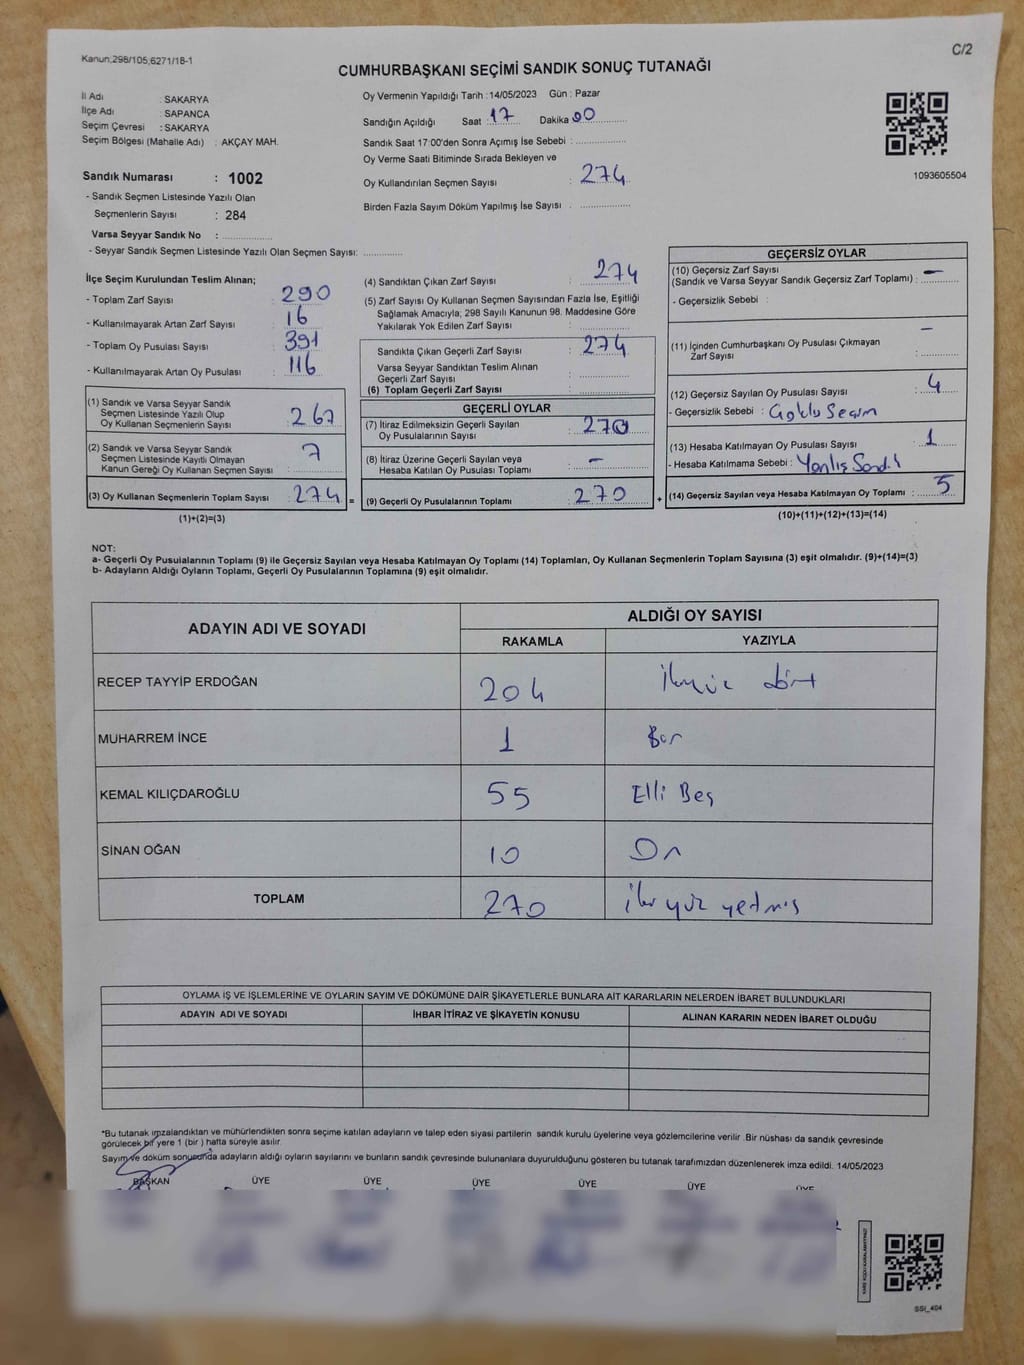 Kanun;298/105,6271/18-1
C/2
CUMHURBAŞKANI SEÇİMİ SANDIK SONUÇ TUTANAĞI
İl Adı : SAKARYA
İlçe Adı : SAPANCA
Seçim Çevresi : SAKARYA
Seçim Bölgesi (Mahalle Adı) : AKÇAY MAH.
Sandık Numarası : 1002
- Sandık Seçmen Listesinde Yazılı Olan
Seçmenlerin Sayısı : 284
Varsa Seyyar Sandık No : ..................
- Seyyar Sandık Seçmen Listesinde Yazılı Olan Seçmen Sayısı: .............
Oy Vermenin Yapıldığı Tarih : 14/05/2023 Gün : Pazar
Sandığın Açıldığı Saat : 17 Dakika : 00
Sandık Saat 17:00'den Sonra Açımış İse Sebebi : ................
Oy Verme Saati Bitiminde Sırada Bekleyen ve
Oy Kullandırılan Seçmen Sayısı : 274
Birden Fazla Sayım Döküm Yapılmış İse Sayısı : ................
1093605504
İlçe Seçim Kurulundan Teslim Alınan;
- Toplam Zarf Sayısı : 290
- Kullanılmayarak Artan Zarf Sayısı : 16
- Toplam Oy Pusulası Sayısı : 391
- Kullanılmayarak Artan Oy Pusulası : 116
(1) Sandık ve Varsa Seyyar Sandık
Seçmen Listesinde Yazılı Olup
Oy Kullanan Seçmenlerin Sayısı : 267
(2) Sandık ve Varsa Seyyar Sandık
Seçmen Listesinde Kayıtlı Olmayan
Kanun Gereği Oy Kullanan Seçmen Sayısı : 7
(3) Oy Kullanan Seçmenlerin Toplam Sayısı : 274 =
(1)+(2)=(3)
(4) Sandıktan Çıkan Zarf Sayısı : 274
(5) Zarf Sayısı Oy Kullanan Seçmen Sayısından Fazla İse, Eşitliği
Sağlamak Amacıyla; 298 Sayılı Kanunun 98. Maddesine Göre
Yakılarak Yok Edilen Zarf Sayısı : ................
Sandıkta Çıkan Geçerli Zarf Sayısı : 274
Varsa Seyyar Sandıktan Teslim Alınan
Geçerli Zarf Sayısı : ................
(6) Toplam Geçerli Zarf Sayısı : ................
GEÇERLİ OYLAR
(7) İtiraz Edilmeksizin Geçerli Sayılan
Oy Pusulalarının Sayısı : 270
(8) İtiraz Üzerine Geçerli Sayılan veya
Hesaba Katılan Oy Pusulası Toplamı : –
(9) Geçerli Oy Pusulalarının Toplamı : 270 +
GEÇERSİZ OYLAR
(10) Geçersiz Zarf Sayısı
(Sandık ve Varsa Seyyar Sandık Geçersiz Zarf Toplamı) : –
- Geçersizlik Sebebi :
(11) İçinden Cumhurbaşkanı Oy Pusulası Çıkmayan
Zarf Sayısı : –
(12) Geçersiz Sayılan Oy Pusulası Sayısı : 4
- Geçersizlik Sebebi : Çoklu Seçim
(13) Hesaba Katılmayan Oy Pusulası Sayısı : 1
- Hesaba Katılmama Sebebi : Yanlış Sandık
(14) Geçersiz Sayılan veya Hesaba Katılmayan Oy Toplamı : 5
(10)+(11)+(12)+(13)=(14)
NOT:
a- Geçerli Oy Pusulalarının Toplamı (9) ile Geçersiz Sayılan veya Hesaba Katılmayan Oy Toplamı (14) Toplamları, Oy Kullanan Seçmenlerin Toplam Sayısına (3) eşit olmalıdır. (9)+(14)=(3)
b- Adayların Aldığı Oyların Toplamı, Geçerli Oy Pusulalarının Toplamına (9) eşit olmalıdır.
ADAYIN ADI VE SOYADI ALDIĞI OY SAYISI
RAKAMLA YAZIYLA
RECEP TAYYİP ERDOĞAN 204 İkiyüz dört
MUHARREM İNCE 1 Bir
KEMAL KILIÇDAROĞLU 55 Elli Beş
SİNAN OĞAN 10 On
TOPLAM 270 iki yüz yetmiş
OYLAMA İŞ VE İŞLEMLERİNE VE OYLARIN SAYIM VE DÖKÜMÜNE DAİR ŞİKAYETLERLE BUNLARA AİT KARARLARIN NELERDEN İBARET BULUNDUKLARI
ADAYIN ADI VE SOYADI İHBAR İTİRAZ VE ŞİKAYETİN KONUSU ALINAN KARARIN NEDEN İBARET OLDUĞU
*Bu tutanak imzalandıktan ve mühürlendikten sonra seçime katılan adayların ve talep eden siyasi partilerin sandık kurulu üyelerine veya gözlemcilerine verilir .Bir nüshası da sandık çevresinde
görülecek bir yere 1 (bir ) hafta süreyle asılır.
Sayım ve döküm sonucunda adayların aldığı oyların sayılarını ve bunların sandık çevresinde bulunanlara duyurulduğunu gösteren bu tutanak tarafımızdan düzenlenerek imza edildi. 14/05/2023
BAŞKAN ÜYE ÜYE ÜYE ÜYE ÜYE ÜYE
SSI_404